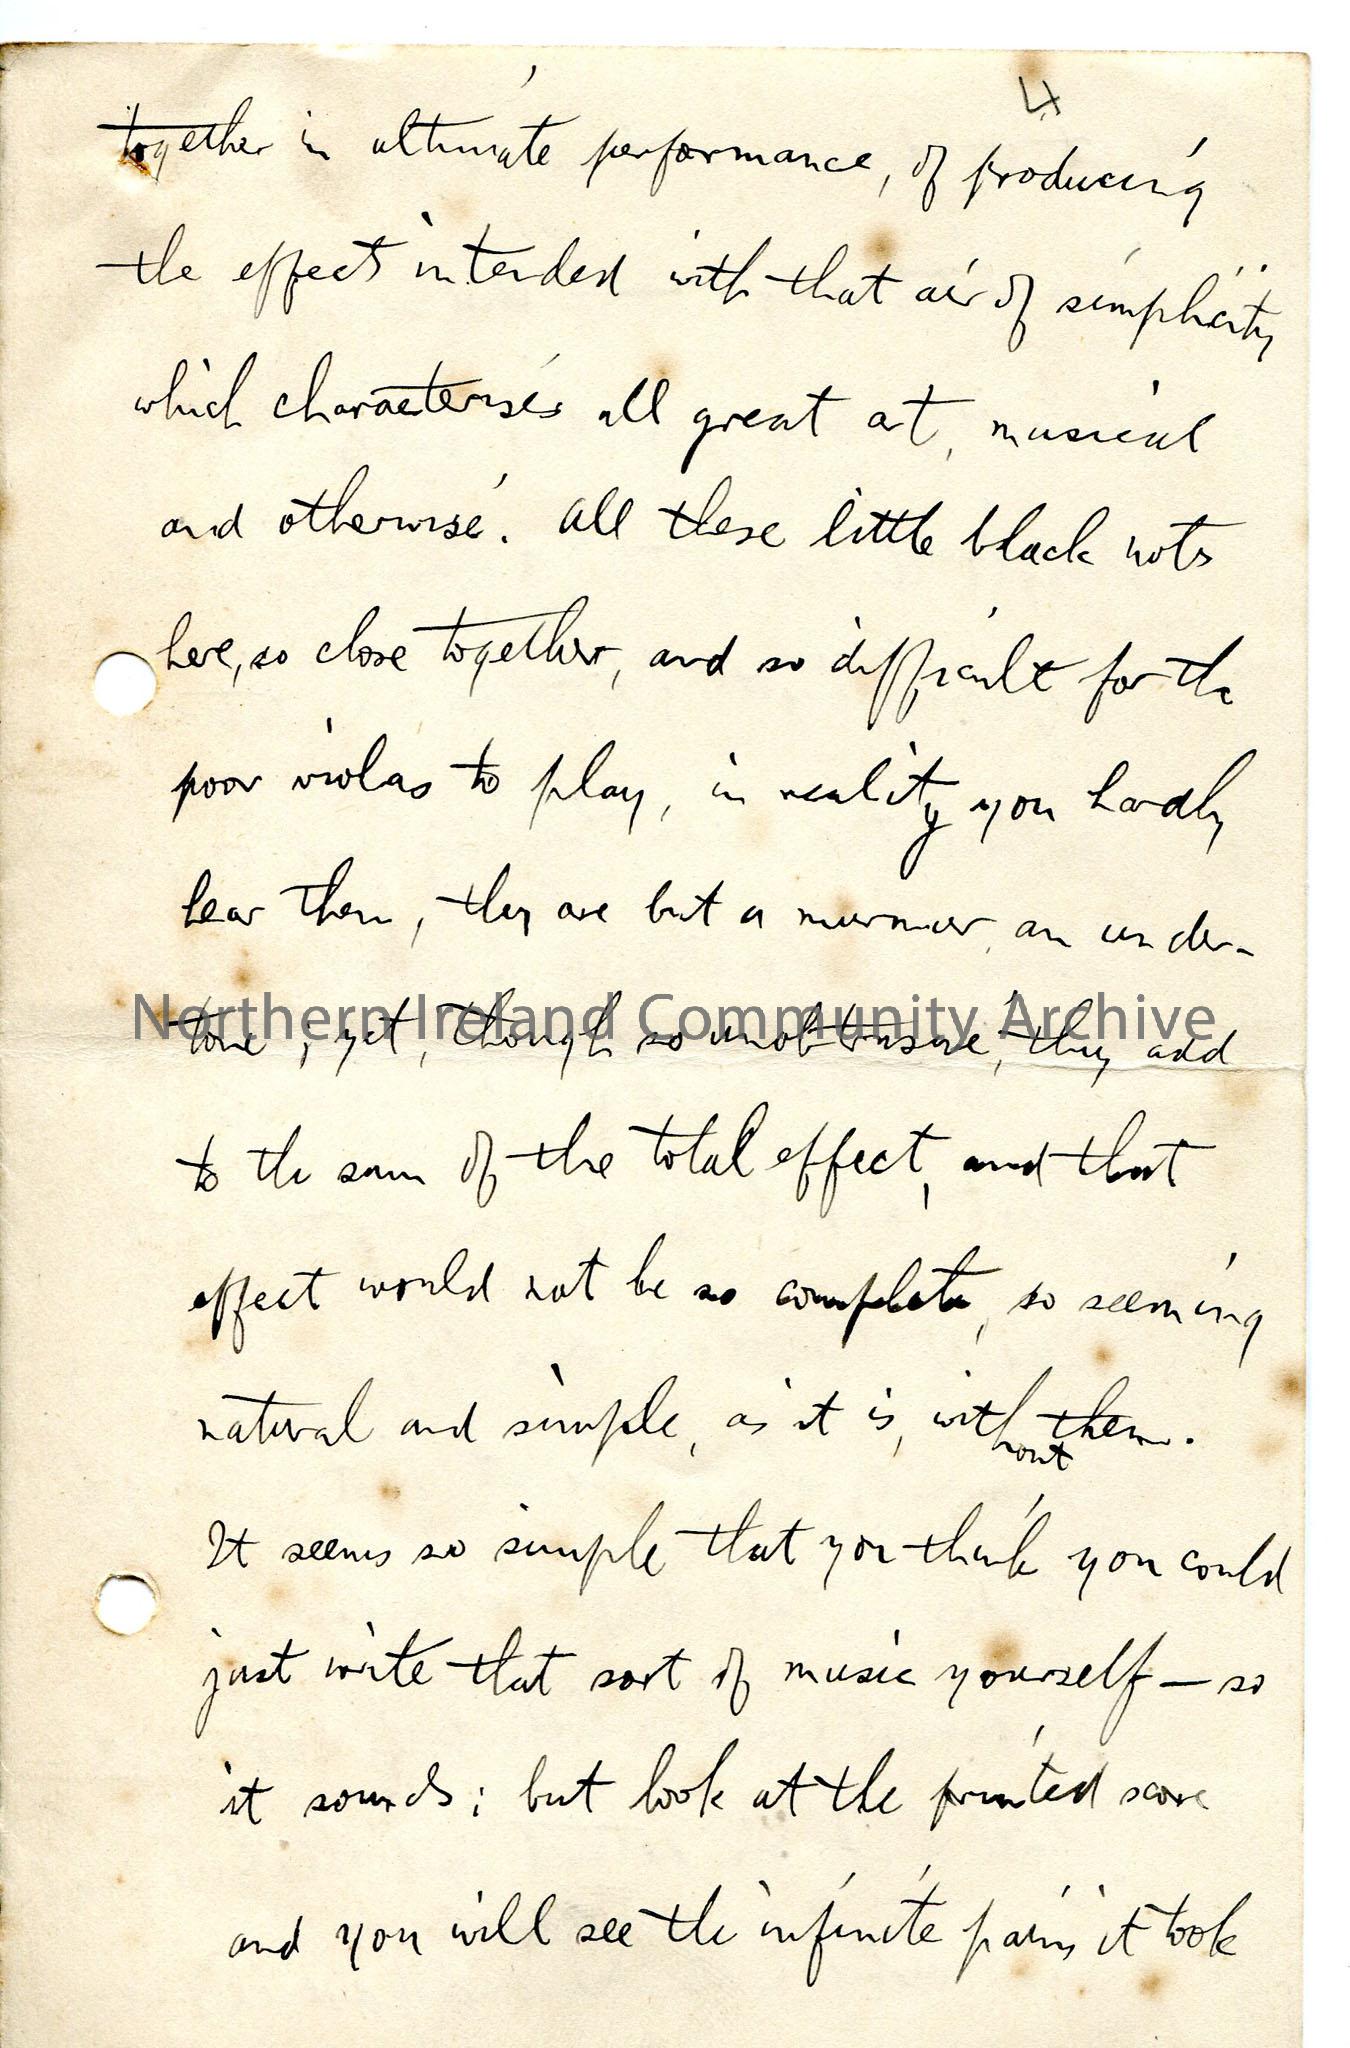 4
together in ultimate performance, of producing
the effects intended with that air of simplicity
which characterises all great art, musical
and otherwise. All these little black nots
here, so close together, and so difficult for the
poor violas to play, in reality you hardly
hear them, they are but a murmur, an under-
tone; yet, though so unobtrusive, they add
to the sum of the total effect, and that
effect would not be so complete, so seeming
natural and simple, as it is, without them.
It seems so simple that you think you could
just write that sort of music yourself — so
it sounds; but look at the printed score
and you will see the infinite pains it took
Northern Ireland Community Archive